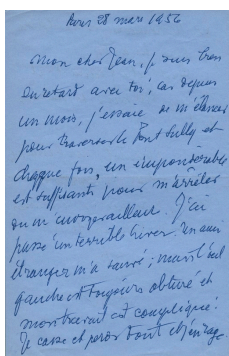 Paris 28 mars 1956
Mon cher Jean, je suis bien
en retard avec toi, car depuis
un mois, j'essaie de m'élancer
pour traverser le Pont Sully et
chaque fois, un impondérable
est suffisant pour m'arrêler
ou m'
passé un terrible hiver. un ami
étranger m'a sauvé ; mais l'œil
gauche est toujours obturé et
mon travail est compliqué.
Je casse et perds tout